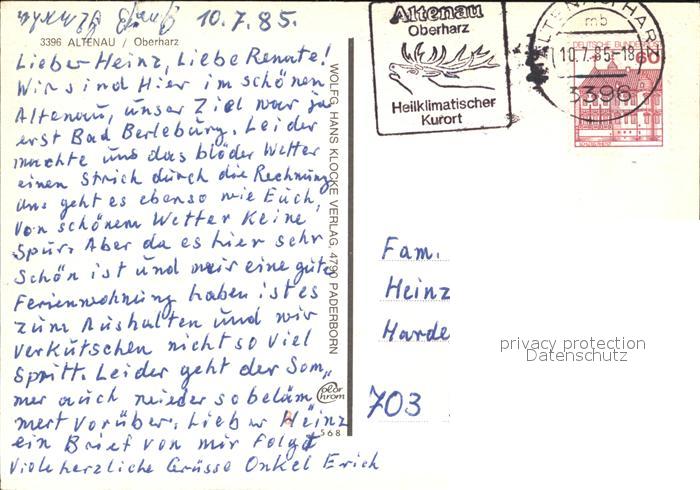 10.7.85.
3396 ALTENAU / Oberharz
Lieber Heinz, Liebe Renate!
Wir sind Hier im schönen
Altenau, unser Ziel war ja
erst Bad Berleburg. Leider
machte uns das blöder Wetter
einen Strich durch die Rechnung
uns geht es ebenso wie Euch,
von schönem Wetter Keine
Spur. Aber da es hier sehr
Schön ist und wir eine gute
Ferienwohnung haben ist es
zum Aushalten und wir
verkutschen nicht so viel
Spritt. Leider geht der Som„
mer auch wieder so beläm
mert vorüber. Lieber Heinz
ein Brief von mir folgt
Viele herzliche Grüsse Onkel Erich
WOLFG. HANS KLOCKE VERLAG, 4790 PADERBORN
color
chrom
568
Altenau
Oberharz
Heilklimatischer
Kurort
ALTENAU, HARZ
mb
10.7.85-18
3396
DEUTSCHE BUNDESPOST
60
Fam.
Heinz
Harde
703
privacy protection
Datenschutz